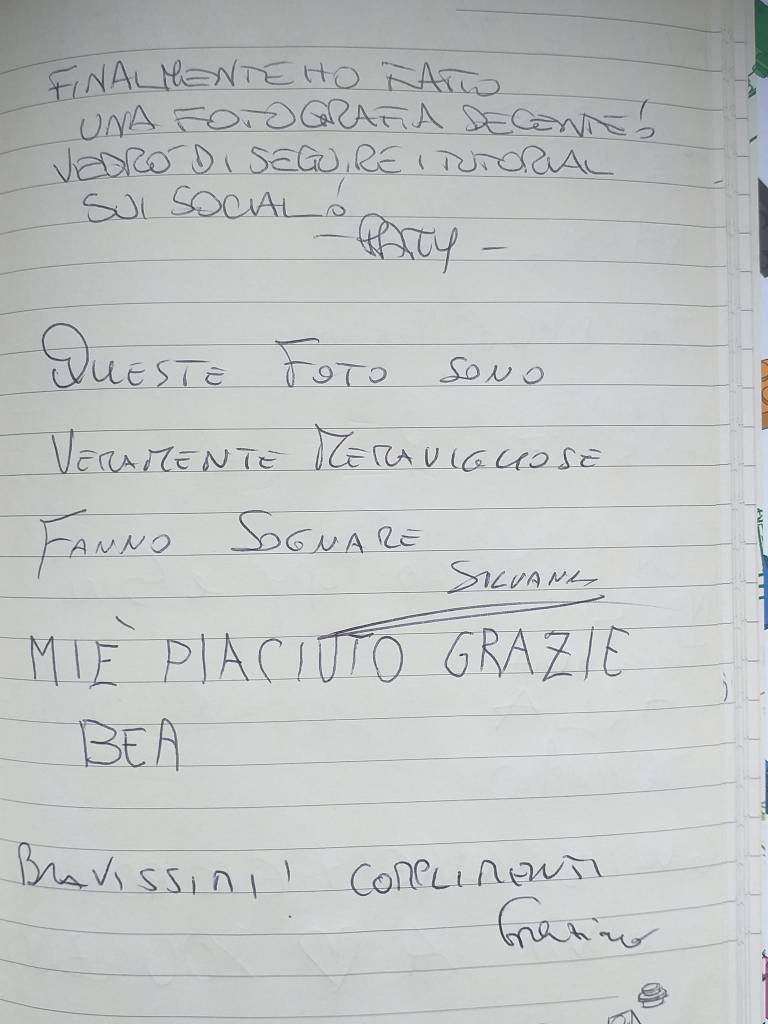 FINALMENTE HO FATTO
UNA FOTOGRAFIA DECENTE!
VEDRÒ DI SEGUIRE I TUTORIAL
SUI SOCIAL!
- PATTY -
QUESTE FOTO SONO
VERAMENTE MERAVIGLIOSE
FANNO SOGNARE
SILVANA
MI È PIACIUTO GRAZIE
BEA
BRAVISSIMI! COMPLIMENTI